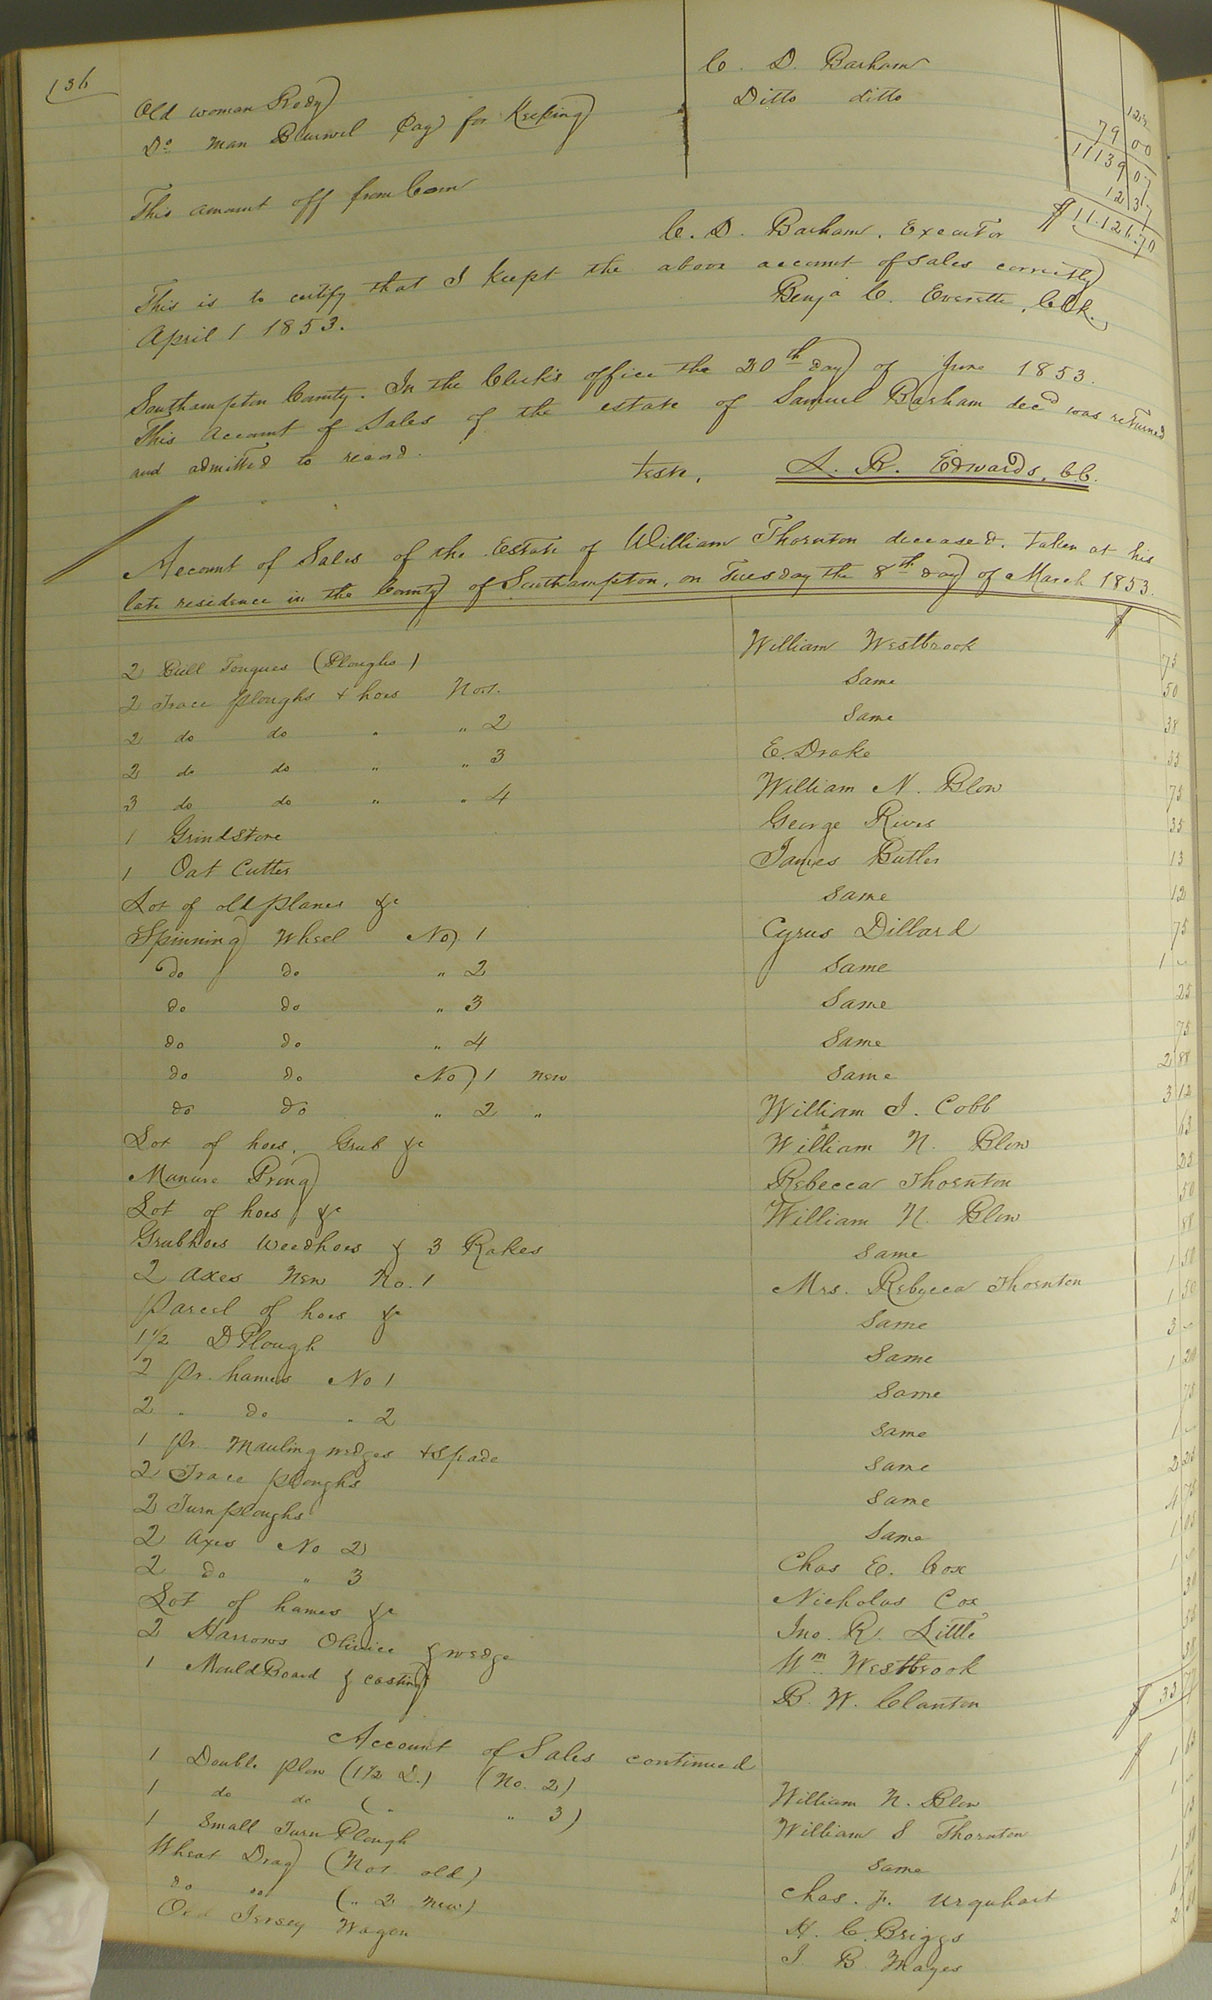 136
Old woman Rody C. D. Barham
Do man Burwel (Pay for Keeping) Ditto ditto 79 00
11139 07
This amount off from Corn 12 37
$11.126.70
C. D. Barham, Executor
This is to certify that I kept the above account of sales correctly
April 1 1853. Benja C. Everette, Clk.
Southampton County. In the Clerk's office the 20th day of June 1853.
This Account of Sales of the estate of Samuel Barham decd was returned
and admitted to record.
Teste, L. R. Edwards, C.C.
Account of Sales of the Estate of William Thornton deceased. taken at his
late residence in the County of Southampton, on Tuesday the 8th day of March 1853.
2 Bull Tongues (Ploughs) William Westbrook 75
2 Trace ploughs & hoes No 1. Same 50
2 do do " " 2 Same 38
2 do do " " 3 E. Drake
3 do do " " 4 William N. Blow 75
1 Grindstone George Rives 35
1 Oat Cutter James Butler 13
Lot of old planes &c Same 12
Spinning Wheel No 1 Cyrus Dillard 75
do do " 2 Same 1 -
do do " 3 Same 25
do do " 4 Same 75
do do No 1 new Same 2 88
do do " 2 " William J. Cobb 3 12
Lot of hoes, Grub &c William N. Blow 63
Manure Prong Rebecca Thornton 25
Lot of hoes, &c William N. Blow 50
Grubhoes Weedhoes & 3 Rakes Same 88
2 Axes New No. 1 Mrs. Rebecca Thornton 1 50
Parcel of hoes &c Same 1 50
1 1/2 D Plough Same 3 -
2 Pr. hames No 1 Same 1 20
2 " do " 2 Same
1 Pr. Mauling wedges & Spade Same
2 Trace ploughs Same
2 Turn ploughs Same
2 Axes No 2 Chas E. Cox
2 do " 3 Nicholas Cox
Lot of hames &c Jno. R. Little
2 Harrows & wedge Wm Westbrook
1 Mould Board & casting B. W. Clanton
$ 33
Account of Sales continued
1 Double Plow (1 1/2 D.) (No. 2) William N. Blow
1 do do ( " " 3) William S Thornton
1 Small Turn Plough Same
Wheat Drag (No 1. old) Chas. F. Urquhart
do do ( " 2 new) H. C. Briggs
Old Jersey Wagon J. B. Mayes